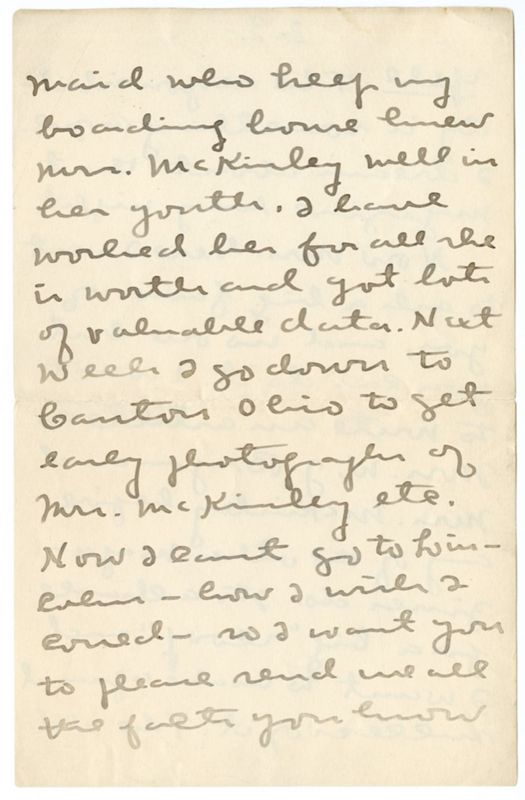 maid who keep my
boarding house knew
Mrs. McKinley well in
her youth. I have
worked her for all she
is worth and got lots
of valuable data. Next
week I go down to
Canton Ohio to get
early photographs of
Mrs. McKinley etc.
Now I can't go to Lin-
coln - how I wish I
could - so I want you
to please send me all
the facts you know